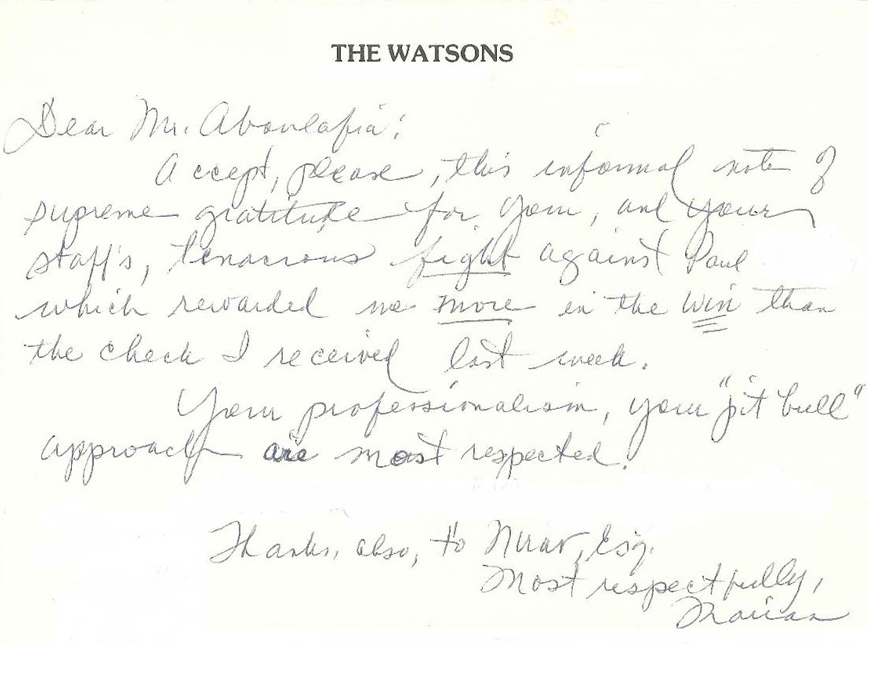 THE WATSONS
Dear Mr. Aboulafia:
Accept, please, this informal note of
supreme gratitude for your, and your
staff's, tenacious fight against Paul
which rewarded no more in the win than
the check I received last week.
Your professionalism, your "pit bull"
approach are most respected!
Thanks, also, to Nirav, Esq.
Most respectfully,
Marian